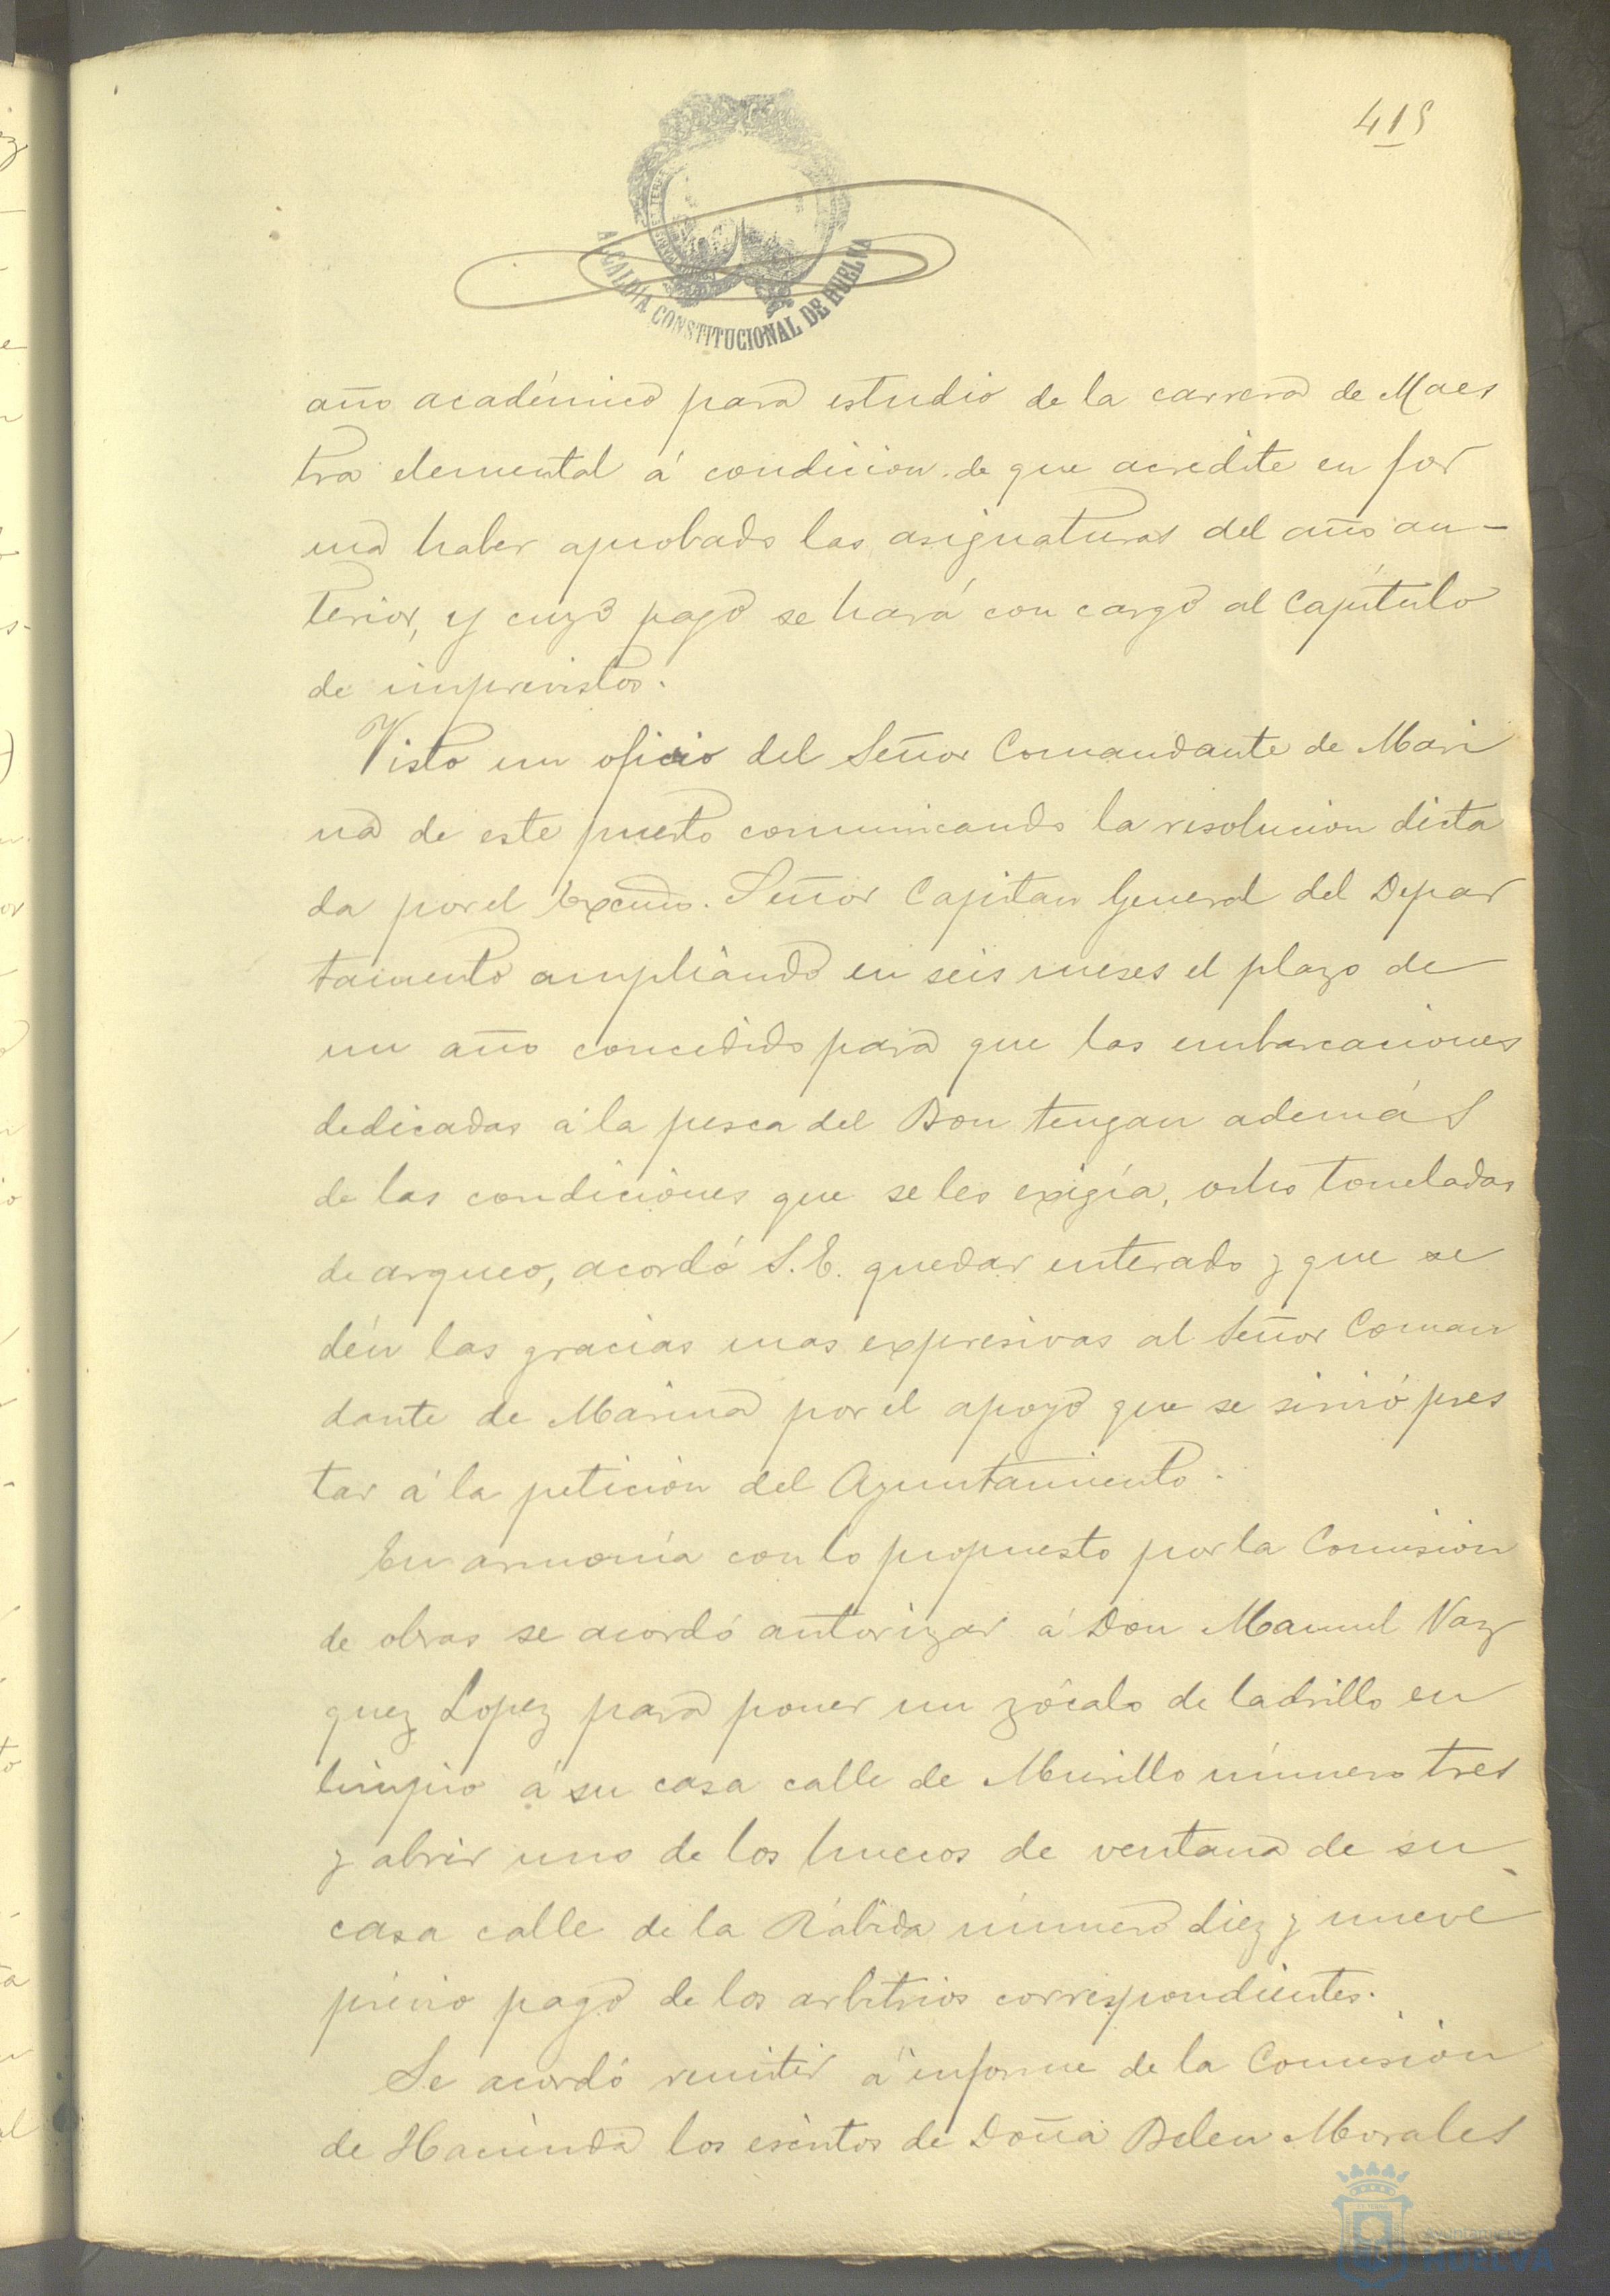 415
ALCALDÍA CONSTITUCIONAL DE HUELVA
año académico para estudio de la carrera de Maes
tra elemental á condicion de que acredite en for
ma haber aprobado las asignaturas del año an-
terior, y cuyo pago se hará con cargo al Capítulo
de imprevistos.
Visto un oficio del Señor Comandante de Mari
na de este puerto comunicando la resolucion dicta
da por el Excmo. Señor Capitan General del Depar
tamento ampliando en seis meses el plazo de
un año concedido para que las embarcaciones
dedicadas á la pesca del Bou tengan además
de las condiciones que se les exigía, ocho toneladas
de arqueo, acordó S.E. quedar enterado y que se
dén las gracias mas expresivas al Señor Coman
dante de Marina por el apoyo que se sirvió pres
tar á la petición del Ayuntamiento.
En armonía con lo propuesto por la Comision
de obras se acordó autorizar á Don Manuel Vaz
quez Lopez para poner un zócalo de ladrillo en
limpio á su casa calle de Murillo número tres
y abrir uno de los huecos de ventana de su
casa calle de la Rábida número diez y nueve
prévio pago de los arbitrios correspondientes.
Se acordó remitir á informe de la Comisión
de Hacienda los escritos de Doña Belen Morales
HUELVA